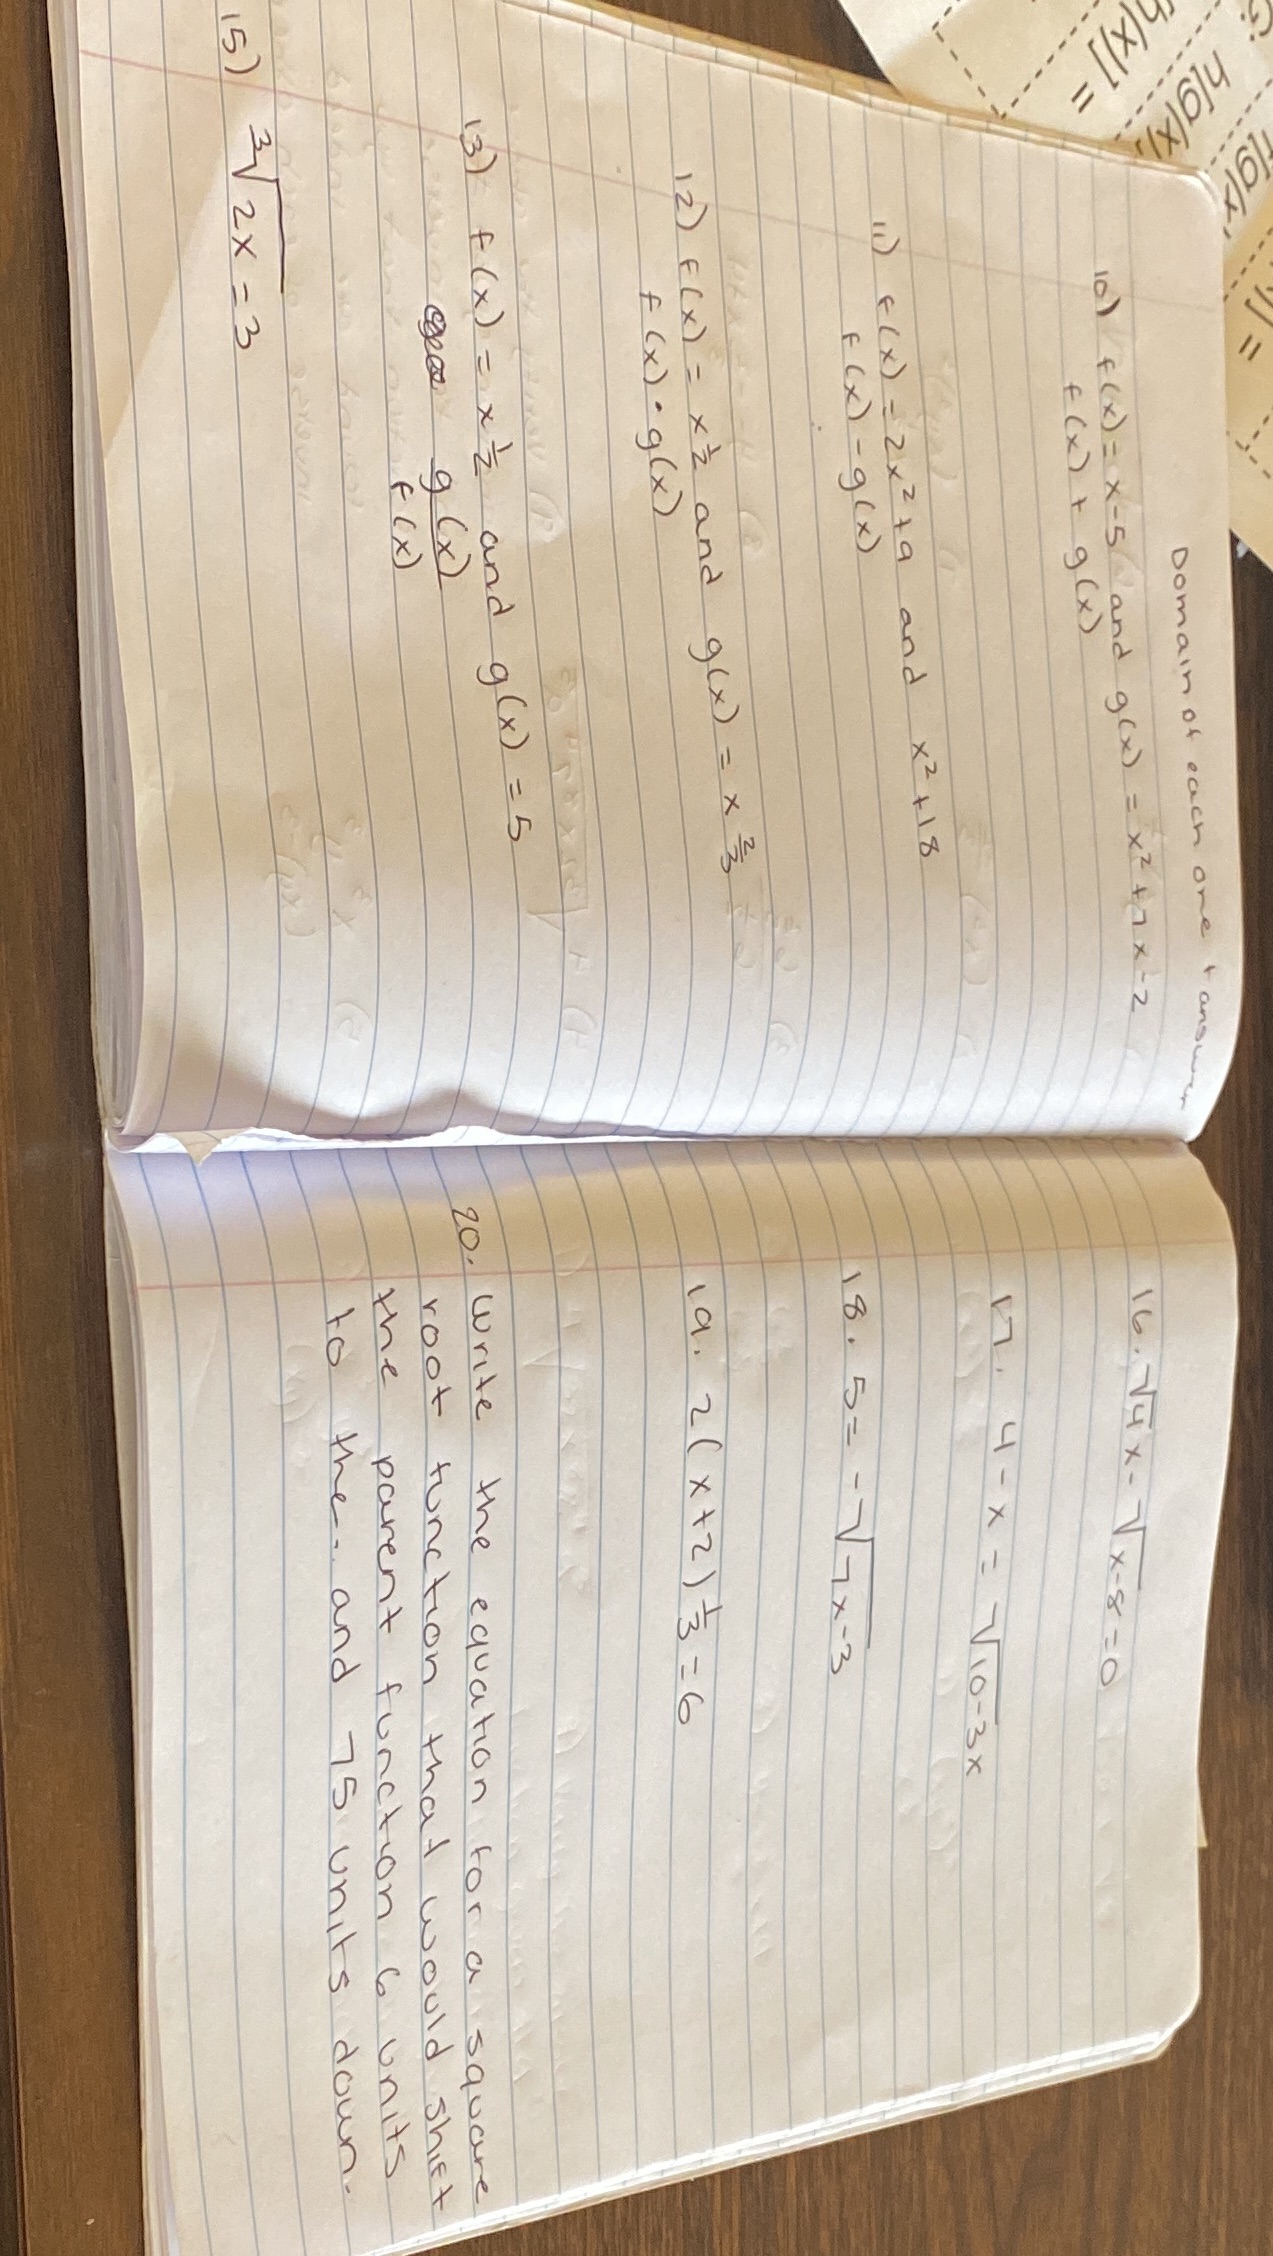 Domain of each one + answer
10) f(x) = x-5 and g(x) = x²+7x-2
f(x) + g(x)
11) f(x) = 2x²+9 and x²+18
f(x) - g(x)
12) f(x) = x^½ and g(x) = x^⅔
f(x) • g(x)
13) f(x) = x^½ and g(x) = 5
g(x)
f(x)
15) ³√2x = 3
16. √4x - √x-8 = 0
17. 4 - x = √10-3x
18. 5 = -√7x-3
19. 2(x+2)^⅓ = 6
20. Write the equation for a square
root function that would shift
the parent function 6 units
to the... and 75 units down.
[h(x)] =
h[g(x)]
f[g(x)